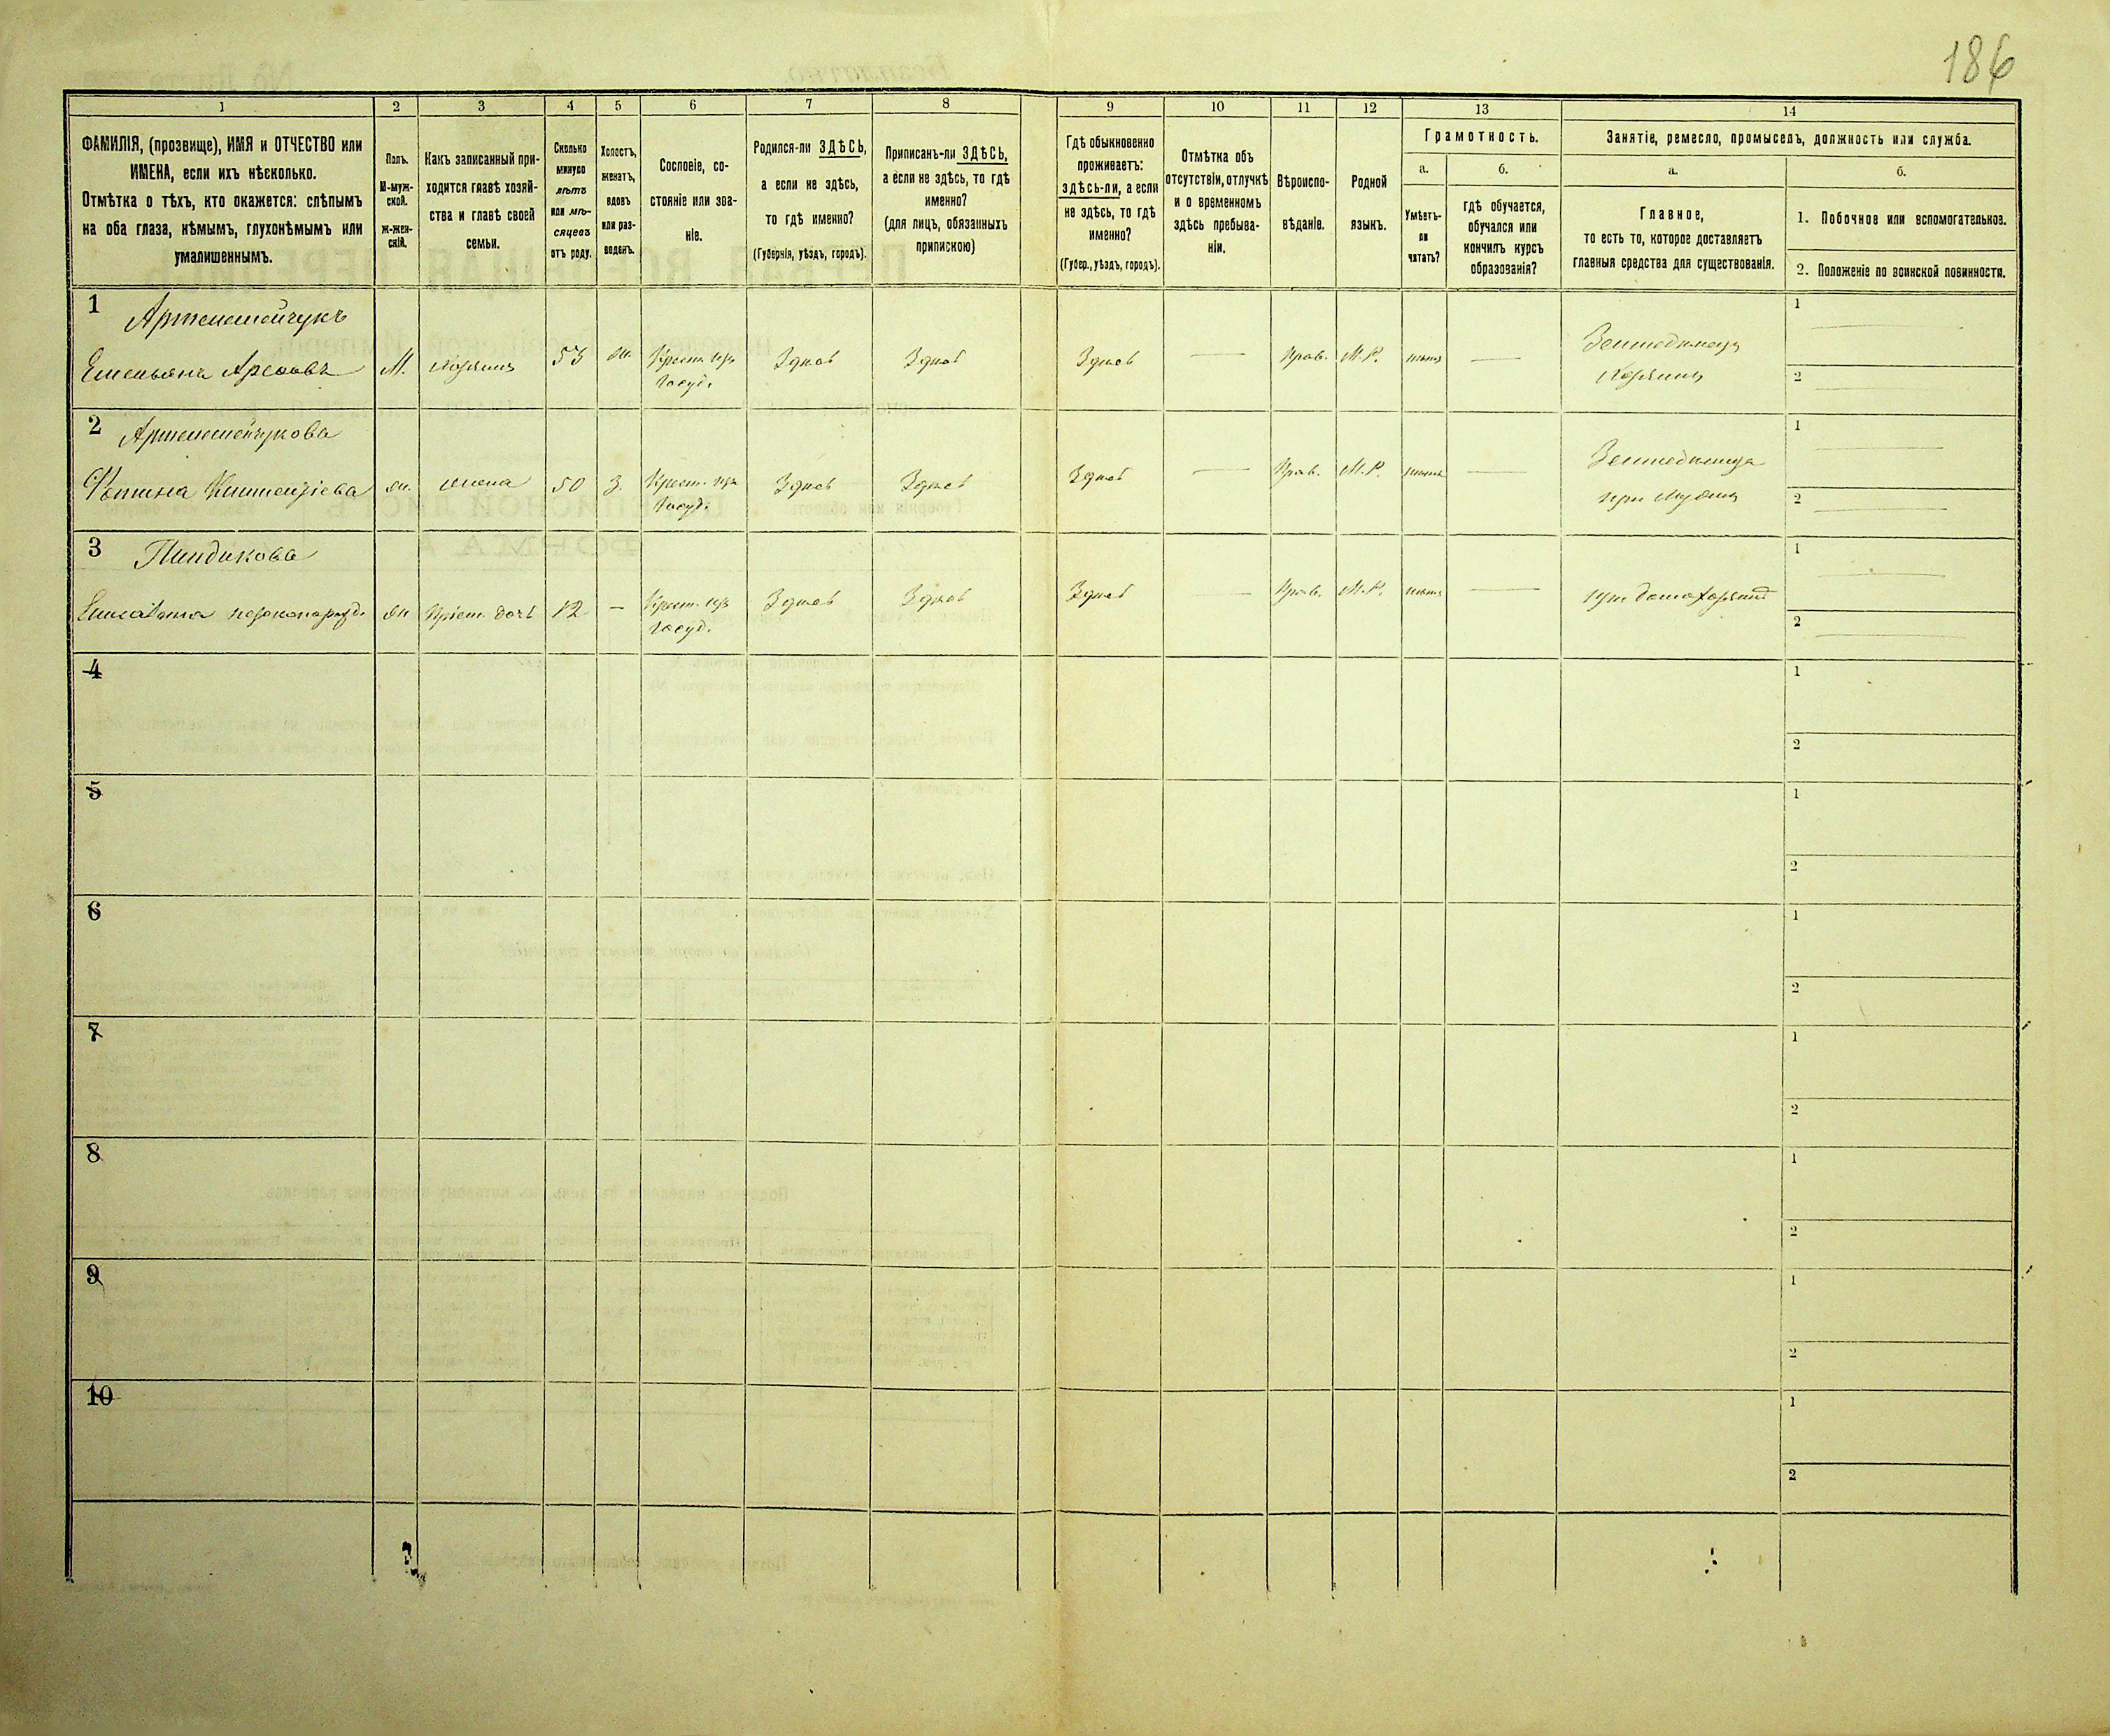 186
1
2
3
4
5
6
7
8
9
10
11
12
13
14
ФАМИЛІЯ, (прозвище), ИМЯ и ОТЧЕСТВО или
ИМЕНА, если ихъ нѣсколько.
Отмѣтка о тѣхъ, кто окажется: слѣпымъ
на оба глаза, нѣмымъ, глухонѣмымъ или
умалишеннымъ.
Полъ.
М-муж-
ской.
Ж-жен-
скій.
Какъ записанный при-
ходится главѣ хозяй-
ства и главѣ своей
семьи.
Сколько
минуло
лѣтъ
или мѣ-
сяцевъ
отъ роду.
Холостъ,
женатъ,
вдовъ
или раз-
веденъ.
Сословіе, со-
стояніе или зва-
ніе.
Родился-ли ЗДѢСЬ,
а если не здѣсь,
то гдѣ именно?
(Губернія, уѣздъ, городъ).
Приписанъ-ли ЗДѢСЬ,
а если не здѣсь, то гдѣ
именно?
(для лицъ, обязанныхъ
припискою)
Гдѣ обыкновенно
проживаетъ:
здѣсь-ли, а если
не здѣсь, то гдѣ
именно?
(Губер., уѣздъ, городъ).
Отмѣтка объ
отсутствіи, отлучкѣ
и о временномъ
здѣсь пребыва-
ніи.
Вѣроиспо-
вѣданіе.
Родной
языкъ.
Грамотность.
а.
Умѣетъ-
ли
читать?
б.
гдѣ обучается,
обучался или
кончилъ курсъ
образованія?
Занятіе, ремесло, промыселъ, должность или служба.
а.
Главное,
то есть то, которое доставляетъ
главныя средства для существованія.
б.
1. Побочное или вспомогательное.
2. Положеніе по воинской повинности.
1
Емельянъ
М.
хозяинъ
53
ж.
Крест. изъ
госуд.
Здѣсь
Здѣсь
Здѣсь
—
Прав.
М.Р.
нѣтъ
—
Земледѣлецъ
Хозяинъ
1
2
2
ж.
жена
50
З.
Крест. изъ
госуд.
Здѣсь
Здѣсь
Здѣсь
—
Прав.
М.Р.
нѣтъ
—
при мужѣ
1
2
3
Елисавета
ж
Пріем. дочь
12
—
Крест. изъ
госуд.
Здѣсь
Здѣсь
Здѣсь
—
Прав.
М.Р.
нѣтъ
—
при
1
2
4
1
2
5
1
2
6
1
2
7
1
2
8
1
2
9
1
2
10
1
2